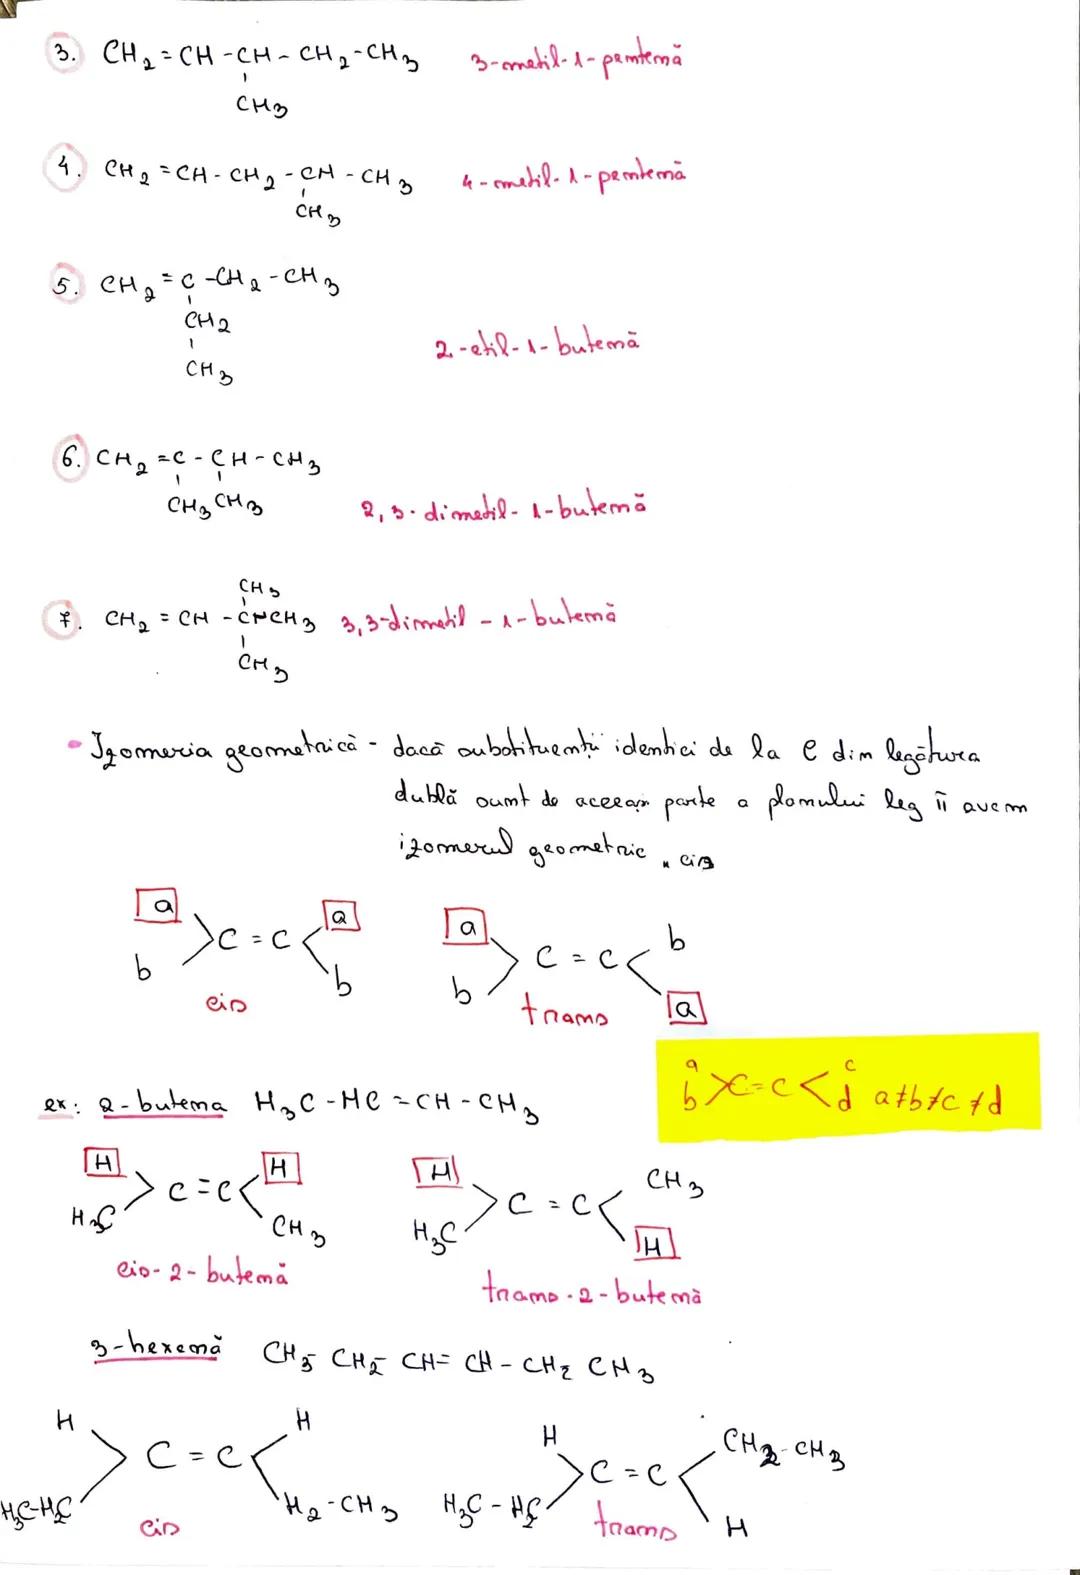 3. CH2 = CH - CH - CH2 - CH3 3-metil-1-pentenă
CH3
4. CH2 = CH - CH2 - CH - CH3 4-metil-1-pentenă
CH3
5. CH2 = C - CH2 - CH3
CH2
CH3
2-etil-1-butenă
6. CH2 = C - CH - CH3
CH3 CH3
2,3-dimetil-1-butenă
CH3
7. CH2 = CH - C - CH3 3,3-dimetil-1-butenă
CH3
• Izomeria geometrică - dacă substituenții identici de la C din legătura
dublă sunt de aceeași parte a planului leg îi avem
izomerul geometric „cis
a a a b
C = C C = C
b b b a
cis trans
a c
b C = C d a≠b≠c≠d
ex: 2-butena H3C - HC = CH - CH3
H H H CH3
C = C C = C
H3C CH3 H3C H
cis-2-butenă trans-2-butenă
3-hexenă CH3- CH2- CH= CH - CH2 CH3
H H H CH2-CH3
C = C C = C
H3C-H2C H2-CH3 H3C - H2C H
cis trans